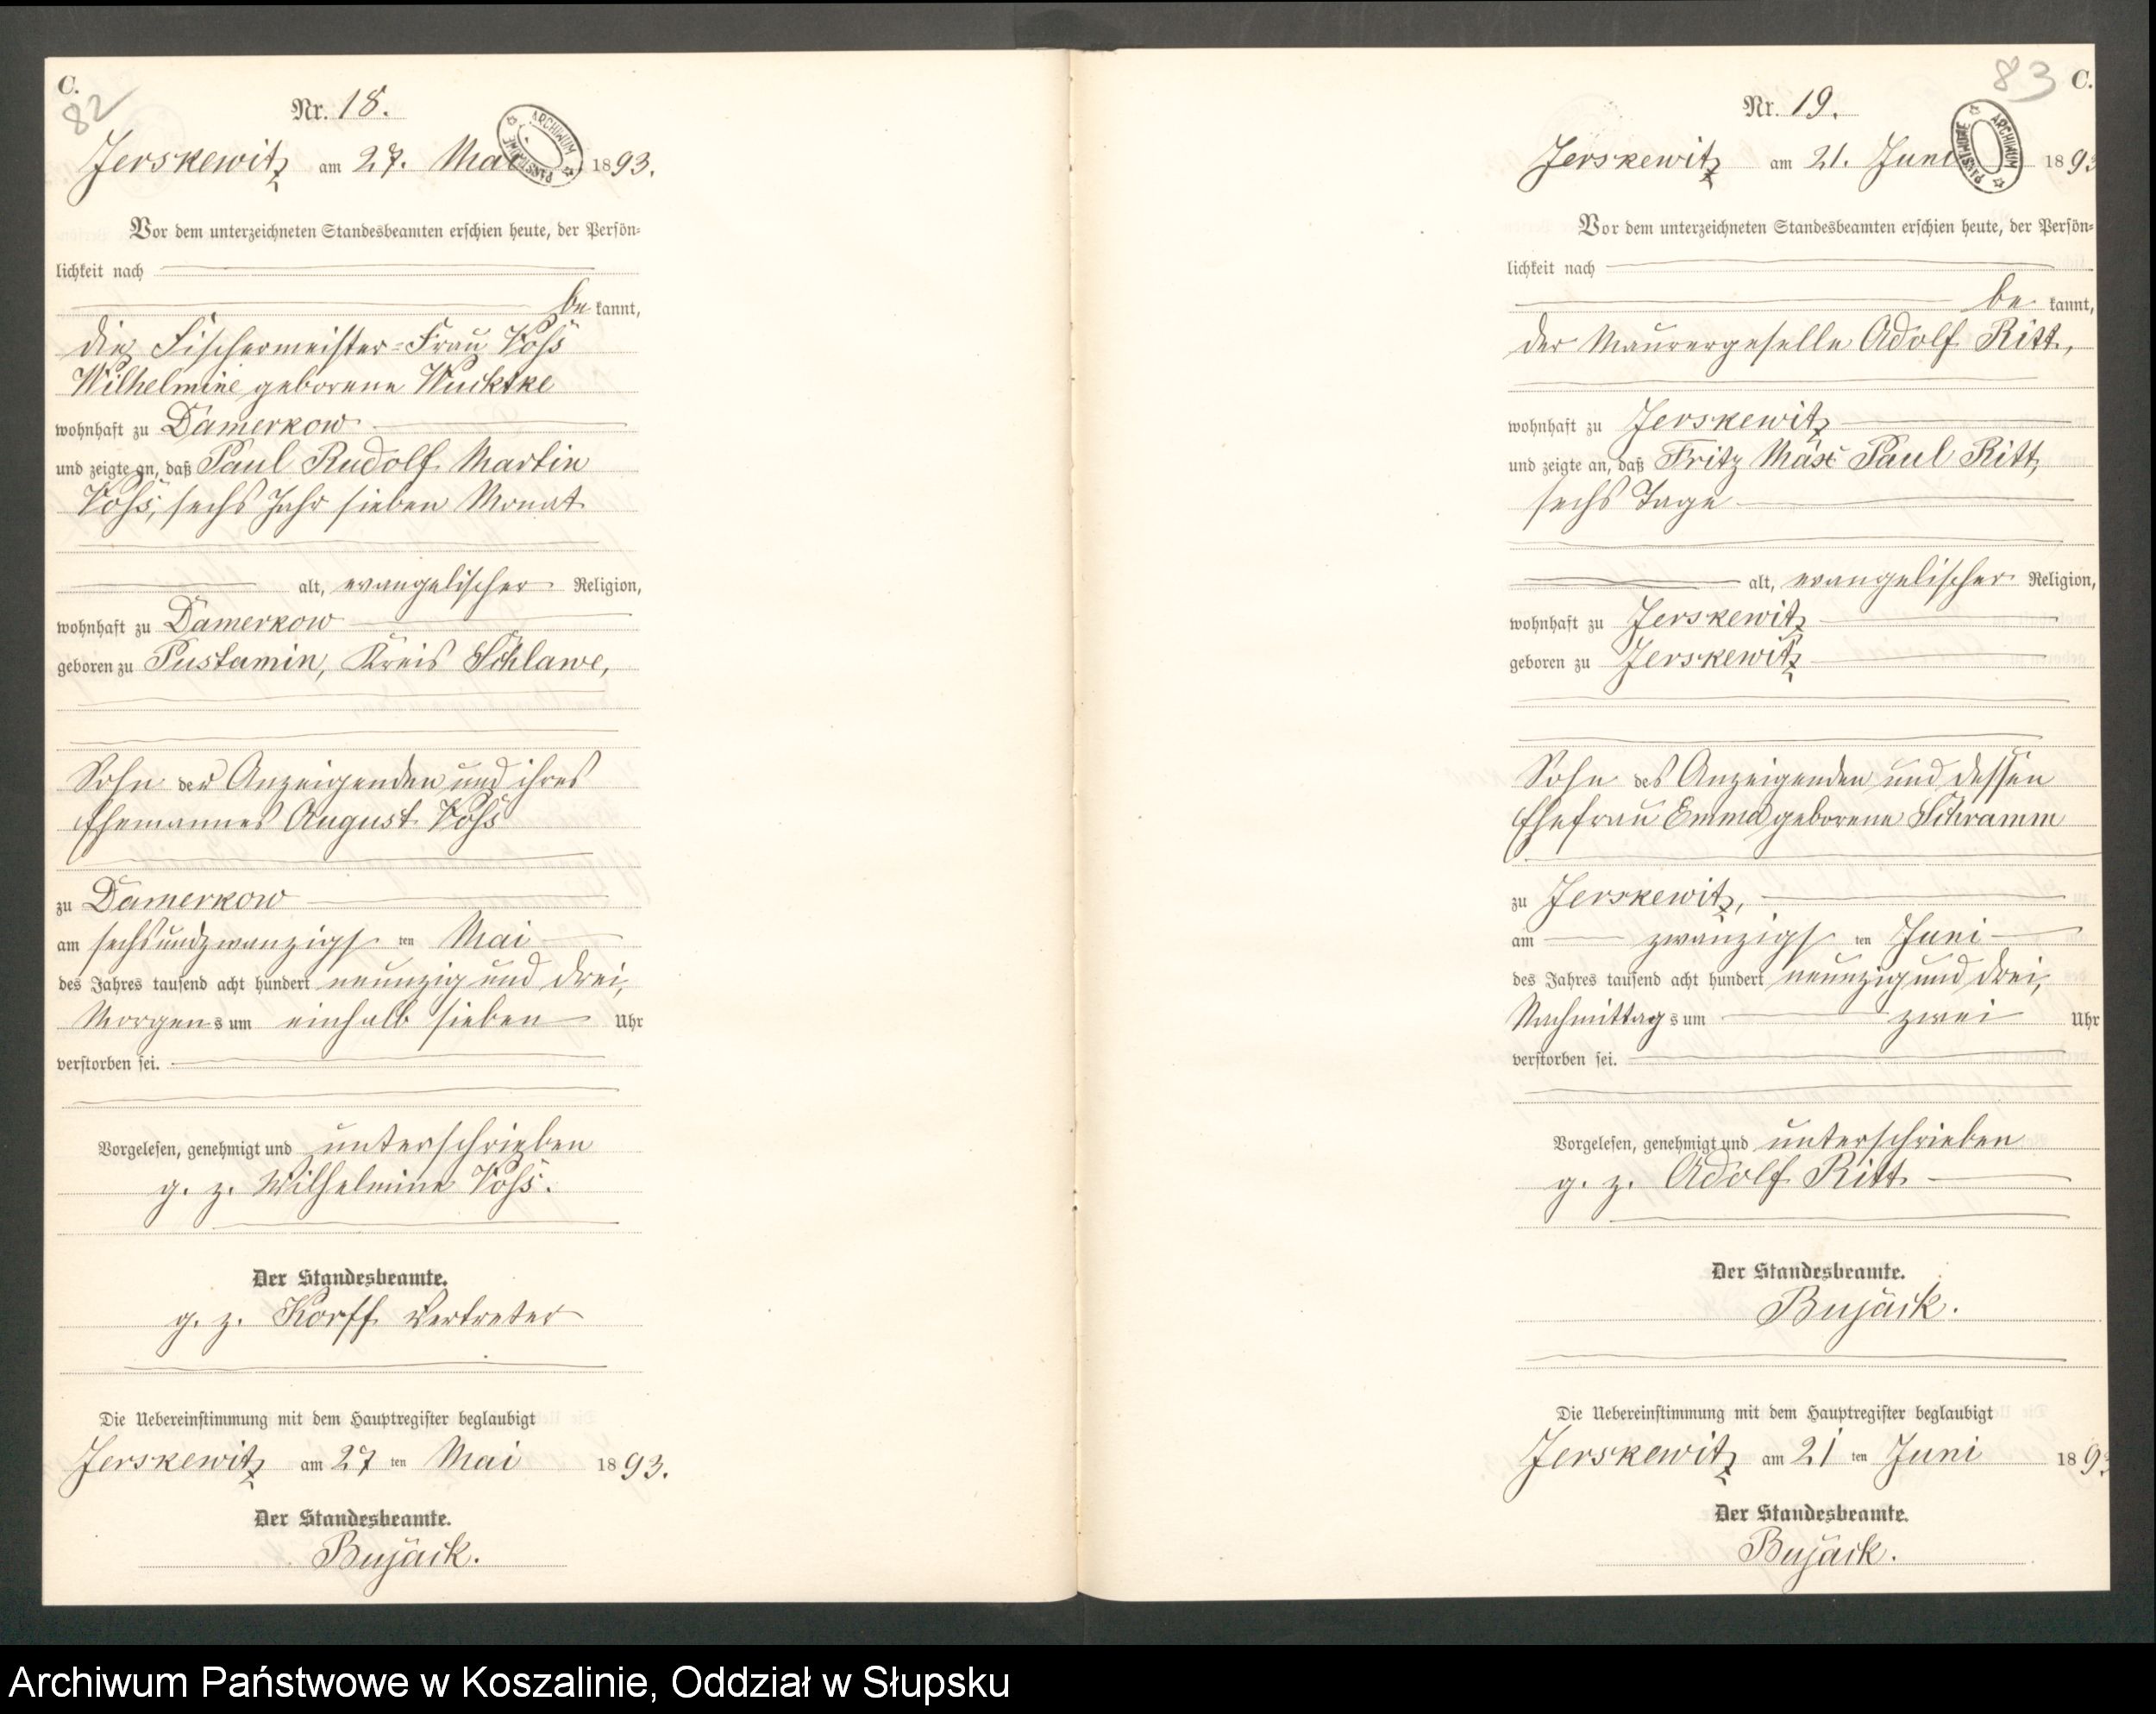 C.
82
Nr. 18.
Jerskewitz am 27. Mai 1893.
Vor dem unterzeichneten Standesbeamten erschien heute, der Persön-
lichkeit nach
be kannt,
die Fischermeister-Frau Voß
Wilhelmine geborene
wohnhaft zu Damerkow
und zeigte an, daß Paul Rudolf Martin
Voß, sechs Jahr sieben Monat
alt, evangelischer Religion,
wohnhaft zu Damerkow
geboren zu Pustamin, Kreis Schlawe,
Sohn der Anzeigenden und ihres
Ehemannes August Voß
zu Damerkow
am sechsundzwanzigsten Mai
des Jahres tausend acht hundert neunzig und drei,
Morgens um einhalb sieben Uhr
verstorben sei.
Vorgelesen, genehmigt und unterschrieben
g. z. Wilhelmine Voß.
Der Standesbeamte.
g. z. Korff Vertreter
Die Uebereinstimmung mit dem Hauptregister beglaubigt
Jerskewitz am 27 ten Mai 1893.
Der Standesbeamte.
Bujack.
83 C.
Nr. 19.
Jerskewitz am 21. Juni 1893
Vor dem unterzeichneten Standesbeamten erschien heute, der Persön-
lichkeit nach
be kannt,
der Maurergeselle Adolf Ritt,
wohnhaft zu Jerskewitz
und zeigte an, daß Fritz Max Paul Ritt,
sechs Tage
alt, evangelischer Religion,
wohnhaft zu Jerskewitz
geboren zu Jerskewitz
Sohn des Anzeigenden und dessen
Ehefrau Emma geborene Schramm
zu Jerskewitz,
am zwanzigsten Juni
des Jahres tausend acht hundert neunzig und drei,
Nachmittags um zwei Uhr
verstorben sei.
Vorgelesen, genehmigt und unterschrieben
g. z. Adolf Ritt
Der Standesbeamte.
Bujack.
Die Uebereinstimmung mit dem Hauptregister beglaubigt
Jerskewitz am 21 ten Juni 1893
Der Standesbeamte.
Bujack.
ARCHIWUM PAŃSTWOWE
ARCHIWUM PAŃSTWOWE
Archiwum Państwowe w Koszalinie, Oddział w Słupsku